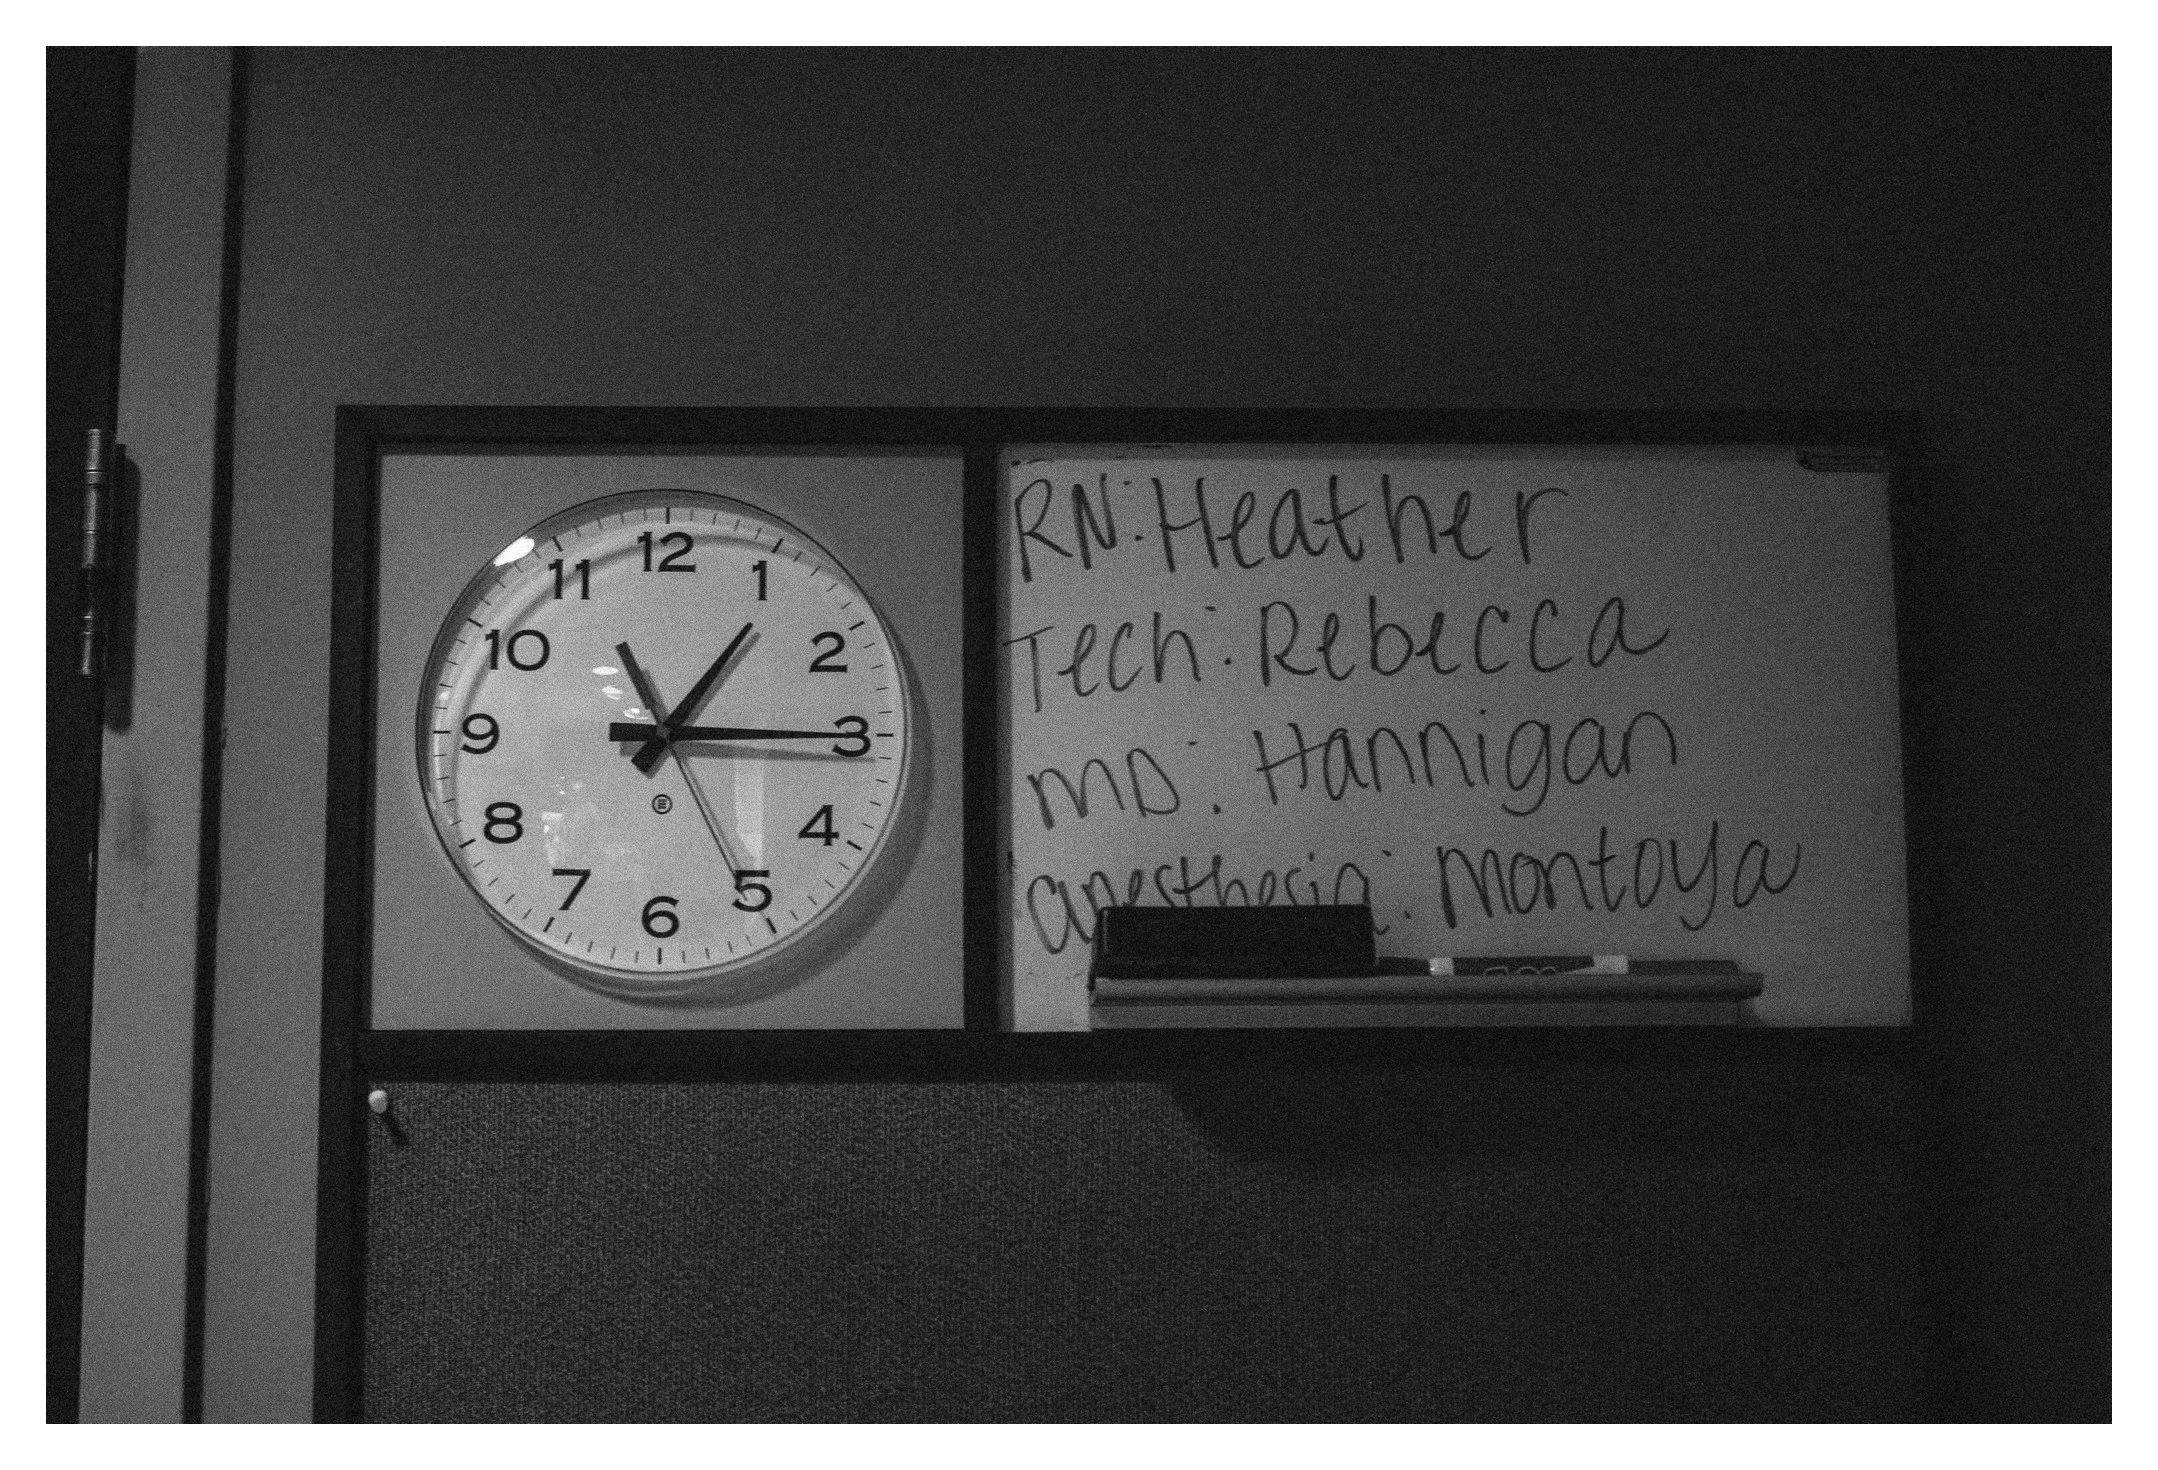 12
1
2
3
4
5
6
7
8
9
10
11
RN: Heather
Tech: Rebecca
MD: Hannigan
anesthesia: Montoya